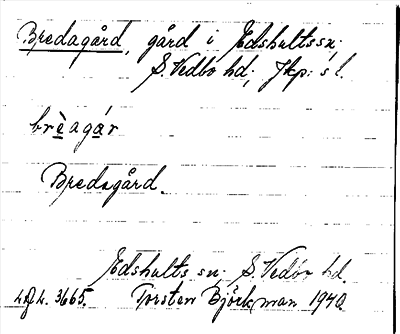 Bredagård, gård i Edshults sn;
S. Vedbo hd; Jkp:s l.
brèagár
Bredagård.
Edshults sn; S. Vedbo hd.
4. 3665. Torsten Björkman 1940